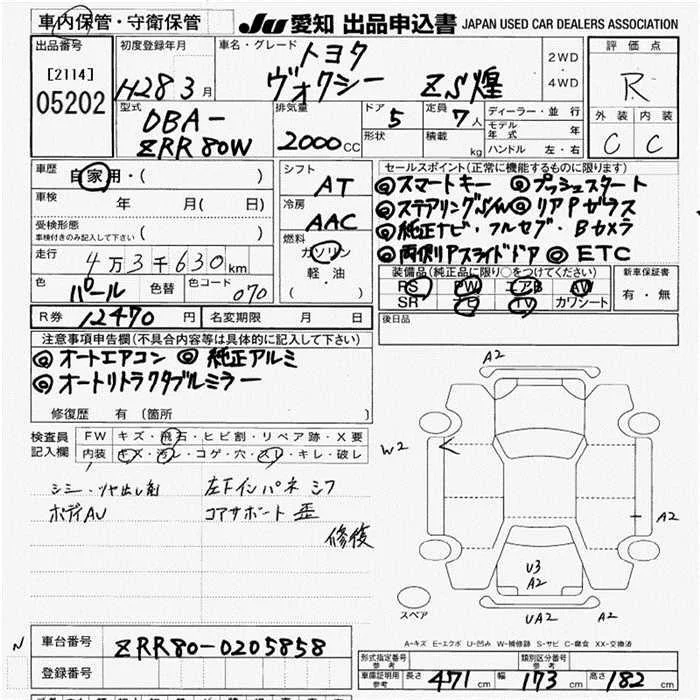 車内保管・守衛保管
JU 愛知 出品申込書 JAPAN USED CAR DEALERS ASSOCIATION
出品番号
[2114]
05202
初度登録年月
H28 3月
車名・グレード
トヨタ
ヴォクシー ZS煌
2WD
・
4WD
評価点
R
外装 内装
C C
型式
DBA-
ZRR80W
排気量
2000CC
ドア 5
形状
定員 7人
積載 kg
ディーラー・並行
モデル年式 年
ハンドル 左・右
車歴
自家用・( )
車検
年 月( 日)
受検形態
車検付きのみ記入して下さい( )
走行
4万3千630km
色
パール
色替
色コード
070
シフト
AT
冷房
AAC
燃料
ガソリン
軽・油
( )
セールスポイント(正常に機能するものに限ります)
◎スマートキー ◎プッシュスタート
◎ステアリングS/W ◎リアPガラス
◎純正ナビ・フルセグ・Bカメラ
◎両側Pスライドドア ◎ETC
装備品(純正品に限り○をつけてください)
PS PW エアB AW
SR ナビ TV カワシート
新車保証書
有・無
後日品
R券 12470円
名変期限 月 日
注意事項申告欄(不具合内容等は具体的に記入して下さい)
◎オートエアコン ◎純正アルミ
◎オートリトラクタブルミラー
修復歴 有(箇所 )
検査員記入欄
FW キズ・飛石・ヒビ割・リペア跡・X要
内装 キズ・汚レ・コゲ・穴・スレ・キレ・破レ
シミ・ツヤ出し剤
ボディAU
左下インパネ シワ
コアサポート 歪
修復
A2
W2
A2
U3
A2
UA2
A2
スペア
A-キズ E-エクボ U-凹み W-補修跡 S-サビ C-腐食 XX-交換済
N
車台番号 ZRR80-0205858
登録番号
形式指定番号
参考
類別区分番号
参考
車庫証明用
参考
長さ 471cm 幅 173cm 高さ 182cm